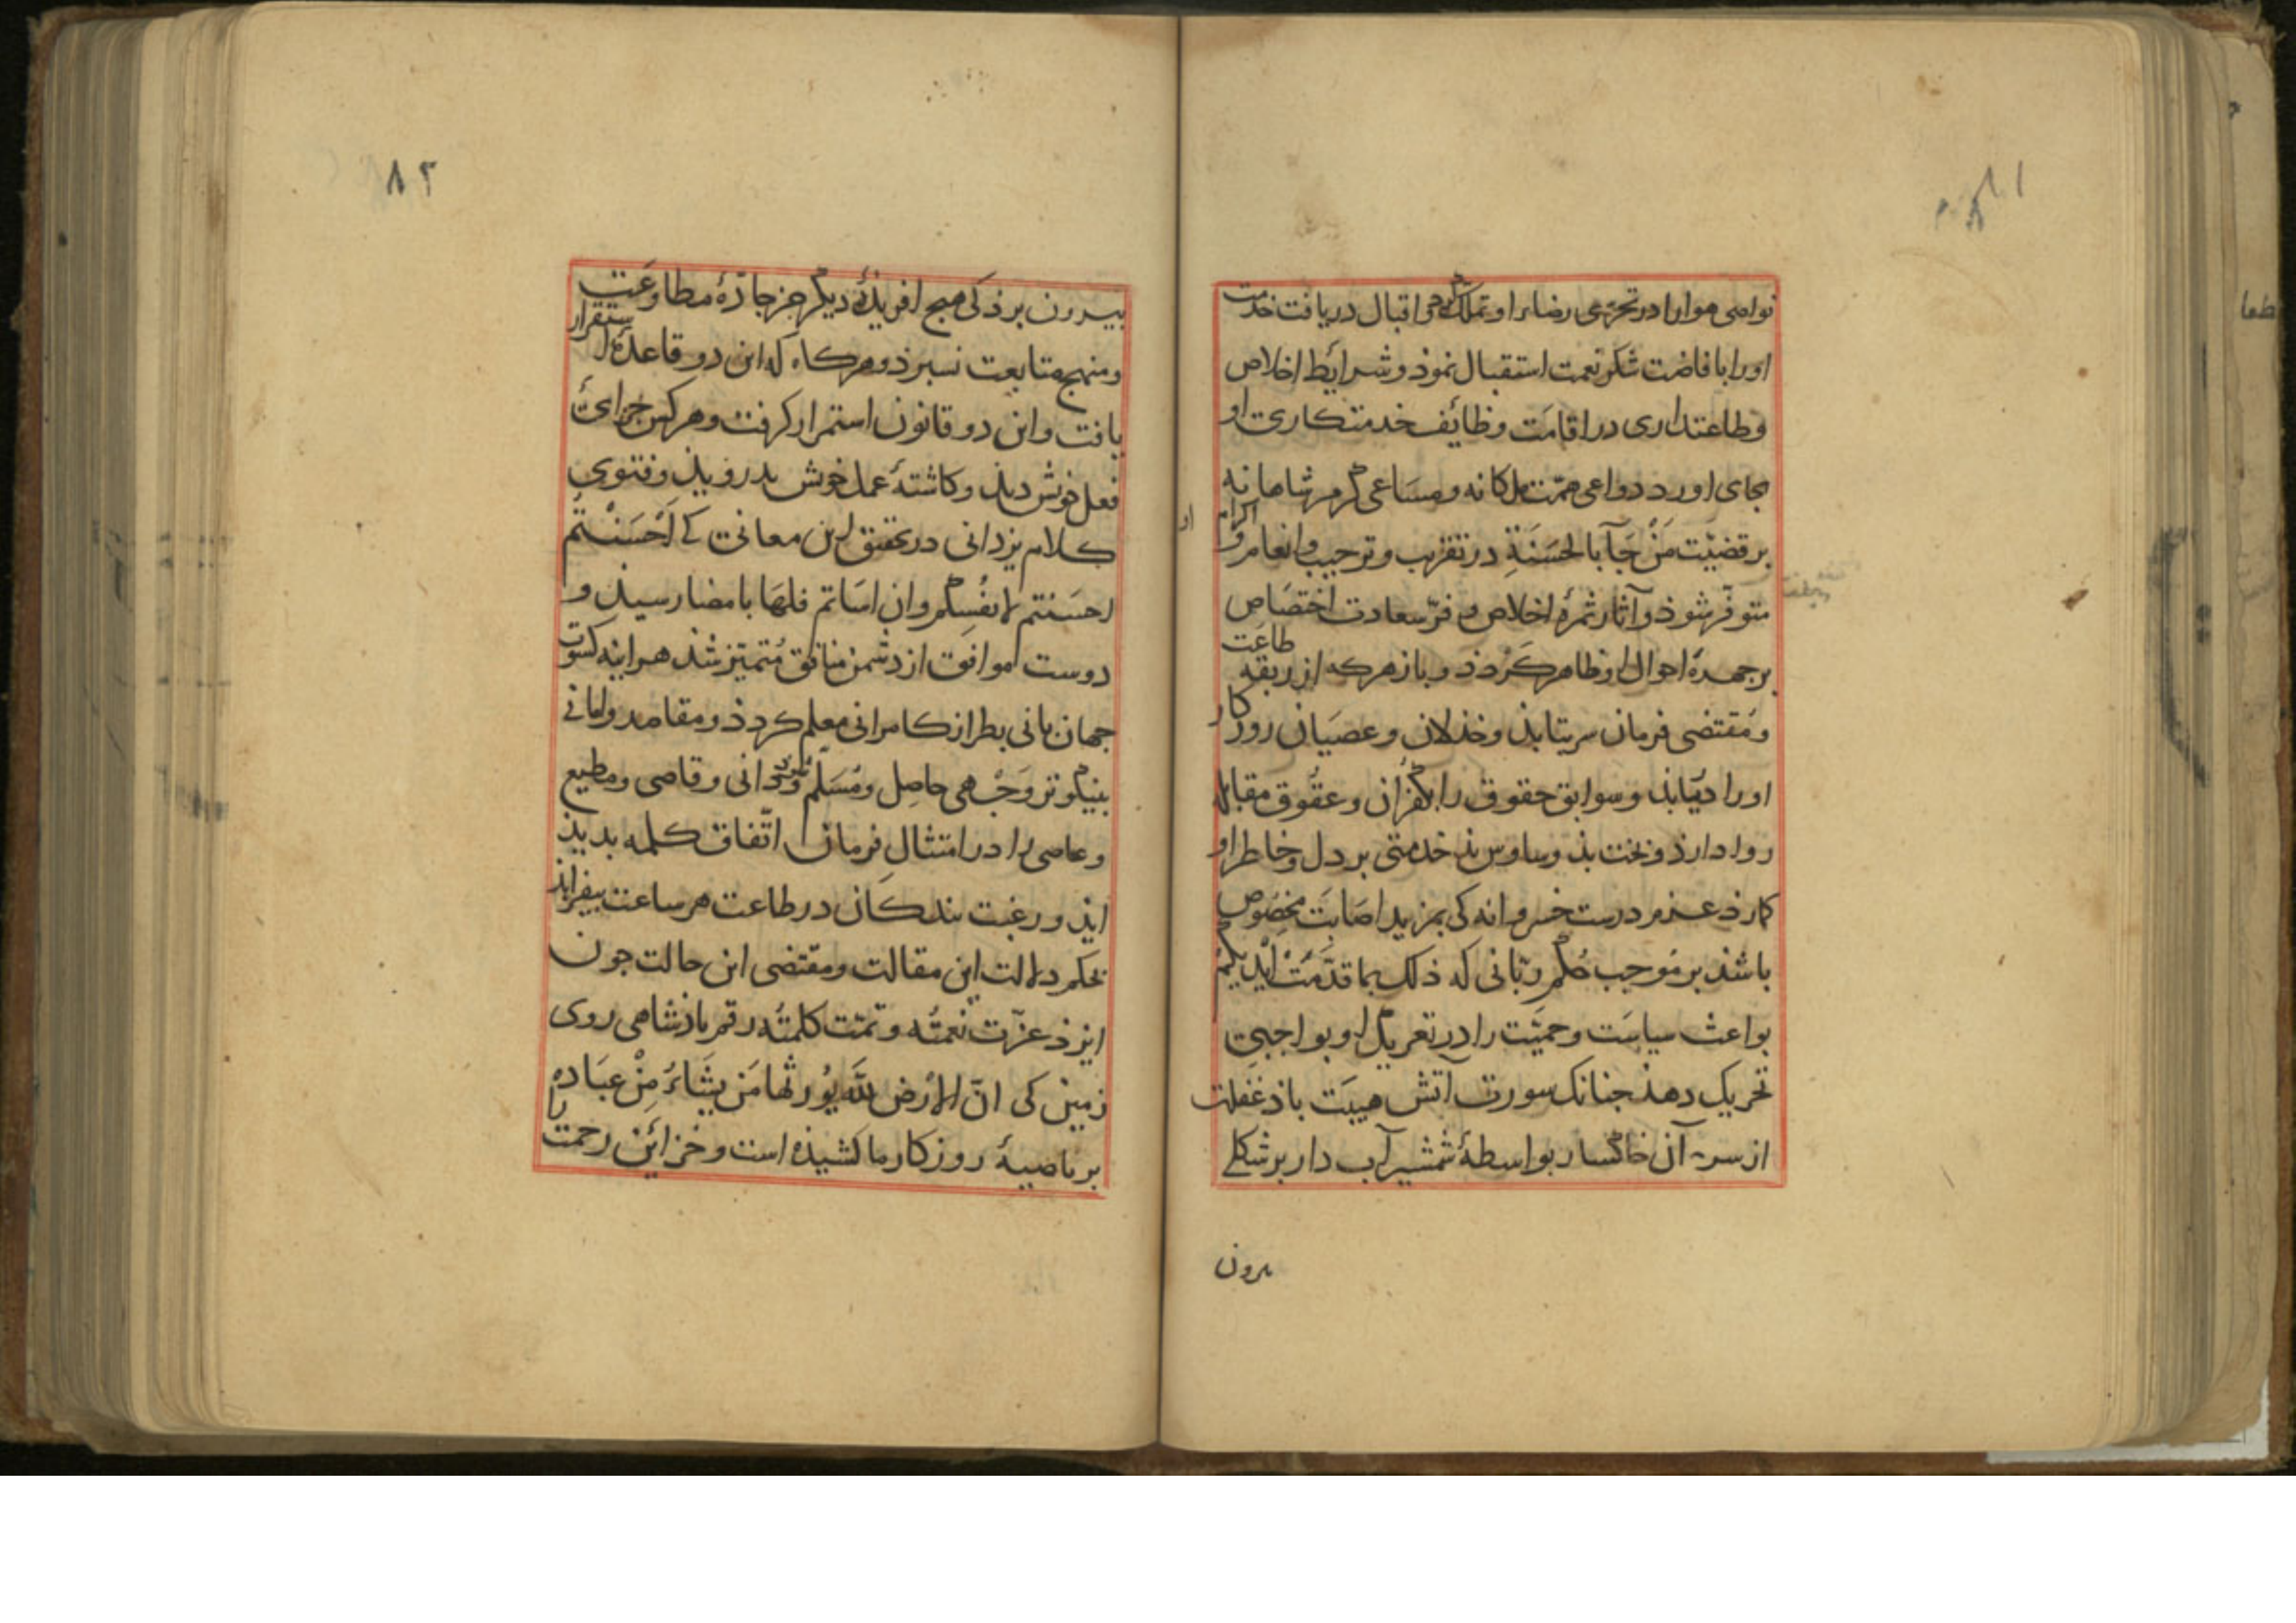 نواصی هوا را در تحرّی رضاء او تملک کرد و اقبال دریافت خدمت
او را بافاضت شکر نعمت استقبال نموذ و شرایط اخلاص
و طاعتداری در اقامت وظائف خدمتکاری او
بجای اورد دواعی همّت ملکانه و مساعی کرم شاهانه
بر قضیّت مَنْ جَآ بالحَسَنَةِ در تقریب و ترحیب و انعام و اکرام
متوفّر شوذ و آثار ثمرهٔ اخلاص و فرّ سعادت اختصاص
بر جهرهٔ احوال او ظاهر کردذ و باز هرکه از ربقهٔ طاعت
و مُقتضی فرمان سر بتابذ و خذلان و عصیان روزکار
او را دریابذ و سوابق حقوق را بکفران و عقوق مقابله
روا دارذ و بخت بذ وساوس بذ خدمتی بر دل و خاطر او
کمارذ عزم درست خسروانه کی بمزید اصابت مخصوص
باشذ بر موجب حُکم ربّانی که ذلک بما قدّمَتْ اَیْدیکم
بواعث سیاست و حمیّت را در تعریک او بواجبی
تحریک دهذ جنانک سورت آتش هیبت باذ غفلت
از سر آن خاکسار بواسطهٔ شمشیر آب دار بر شکلی
برون
۸۲
بیرون برذ کی هیج افریذهٔ دیکر جز جادّهٔ مطاوعت
و منهج متابعت نسبرذ و هرکاه که این دو قاعده استقرار
یافت و این دو قانون استمرار کرفت و هرکس جزای
فعل خوش دیذ و کاشتهٔ عمل خوش بدرویذ و فتوی
کلام یزدانی در تحقیق این معانی که اَحْسَنْتُم
احسَنتم لانفُسِکم و ان اساتم فلهَا بامضا رسیذ و
دوست موافق از دشمن منافق مُتمیّز شذ هراینه کسوت
جهان بانی بطراز کامرانی معلم کردذ و مقاصد و امانی
بنیکوتر وَجْهی حاصِل و مُسَلّم شود و دانی و قاصی و مطیع
و عاصی را در امتثالِ فرمان اتّفاق کلمه بدید
ایذ و رغبت بندکان در طاعت هر ساعت بیفزایذ
بحکم دلالت این مقالت و مقتضی این حالت جون
ایزذ عزّت نعمتُه و تمّت کلمتُه رقم باذشاهی روی
زمین کی انّ الارْض للّه یُورثها مَن یَشَاءُ مِنْ عِبَادهِ
بر ناصیهٔ روزکار ما کشیذه است و خزائن رحمت را